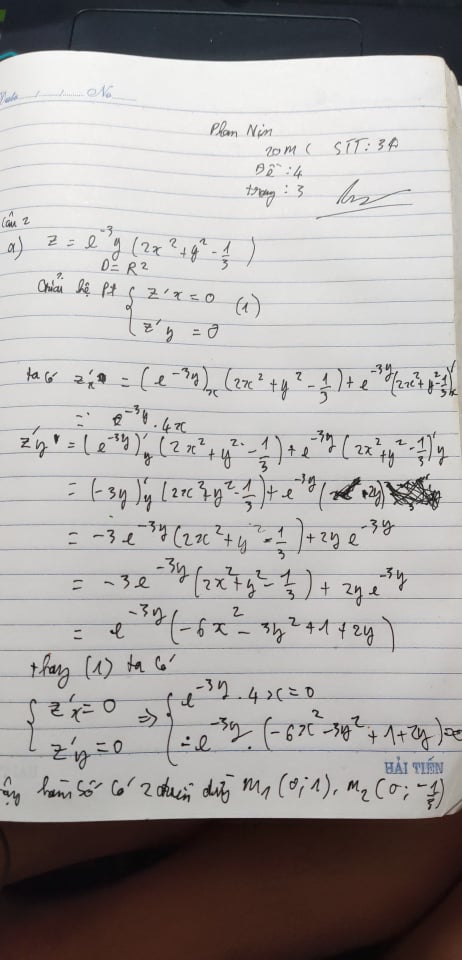 Date / / No
Phan Nin
20MC STT: 30
Đề : 4
trang : 3
Câu 2
a) z = e^-3y (2x² + y² - 1/3)
D = R²
hệ pt { z'x = 0 (1)
z'y = 0
ta có z'x = (e^-3y)'x (2x² + y² - 1/3) + e^-3y (2x² + y² - 1/3)'x
= e^-3y . 4x
z'y = (e^-3y)'y (2x² + y² - 1/3) + e^-3y (2x² + y² - 1/3)'y
= (-3y)'y (2x² + y² - 1/3) + e^-3y (2y)
= -3e^-3y (2x² + y² - 1/3) + 2y e^-3y
= -3e^-3y (2x² + y² - 1/3) + 2y e^-3y
= e^-3y (-6x² - 3y² + 1 + 2y)
thay (1) ta có
{ z'x = 0 => { e^-3y . 4x = 0
z'y = 0 e^-3y . (-6x² - 3y² + 1 + 2y) = 0
HẢI TIẾN
hàm số có 2 điểm dừng M1 (0; 1), M2 (0; -1/3)